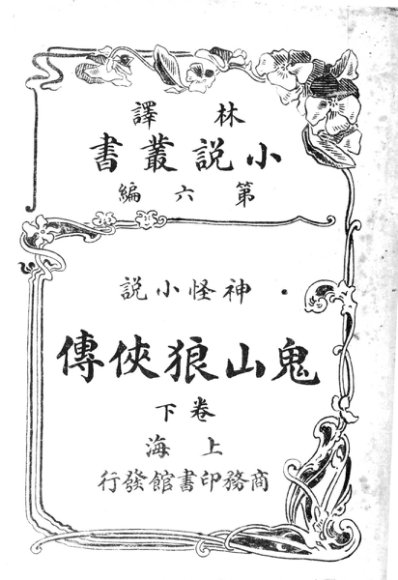 林譯
小説叢書
第六編
神怪小説
鬼山狼俠傳
卷下
上海
商務印書館發行